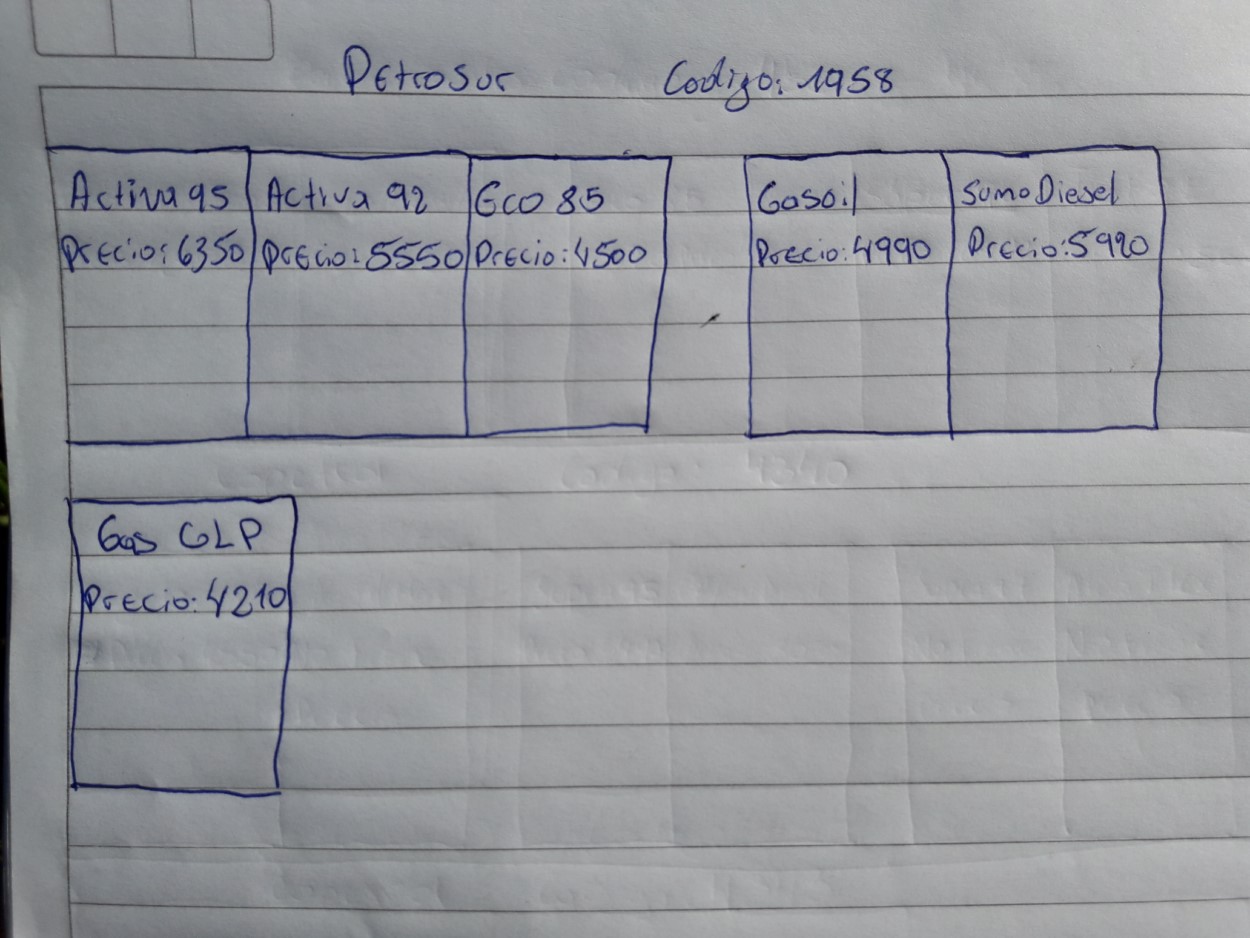 Petrosur Codigo: 1958
Activa 95 Activa 92 Eco 85 Gasoil Sumo Diesel
Precio: 6350 Precio: 5550 Precio: 4500 Precio: 4990 Precio: 5990
Gas GLP
Precio: 4210